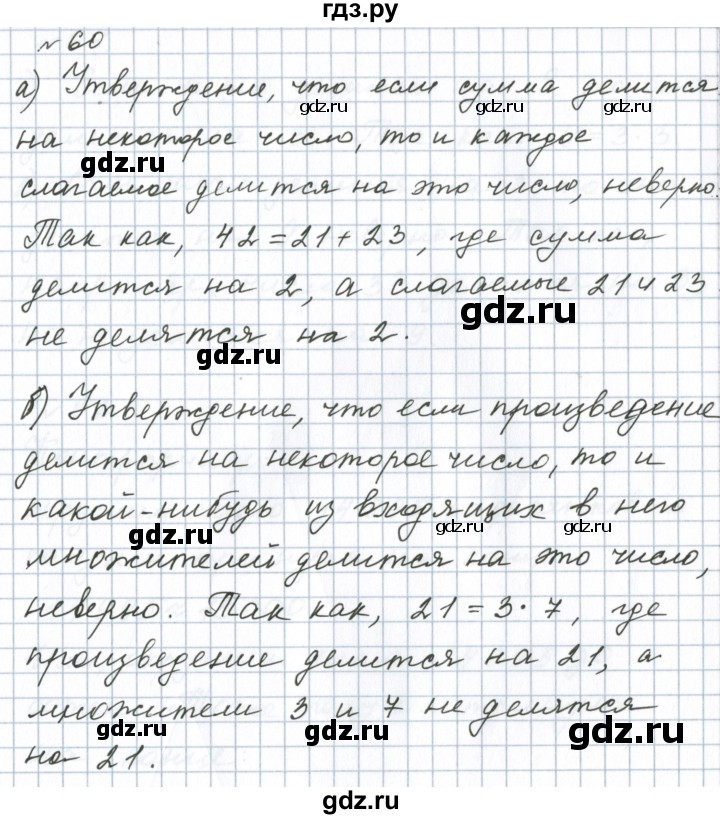 гдз.ру
№60
а) Утверждение, что если сумма делится
на некоторое число, то и каждое
слагаемое делится на это число, неверно.
Так как, 42=21+23, где сумма
делится на 2, а слагаемые 21 и 23
не делятся на 2.
б) Утверждение, что если произведение
делится на некоторое число, то и
какой-нибудь из входящих в него
множителей делится на это число,
неверно. Так как, 21=3·7, где
произведение делится на 21, а
множители 3 и 7 не делятся
на 21.
gdz.ru
gdz.ru
gdz.ru
gdz.ru
gdz.ru
gdz.ru
gdz.ru
gdz.ru
gdz.ru
gdz.ru
gdz.ru
gdz.ru
gdz.ru
gdz.ru